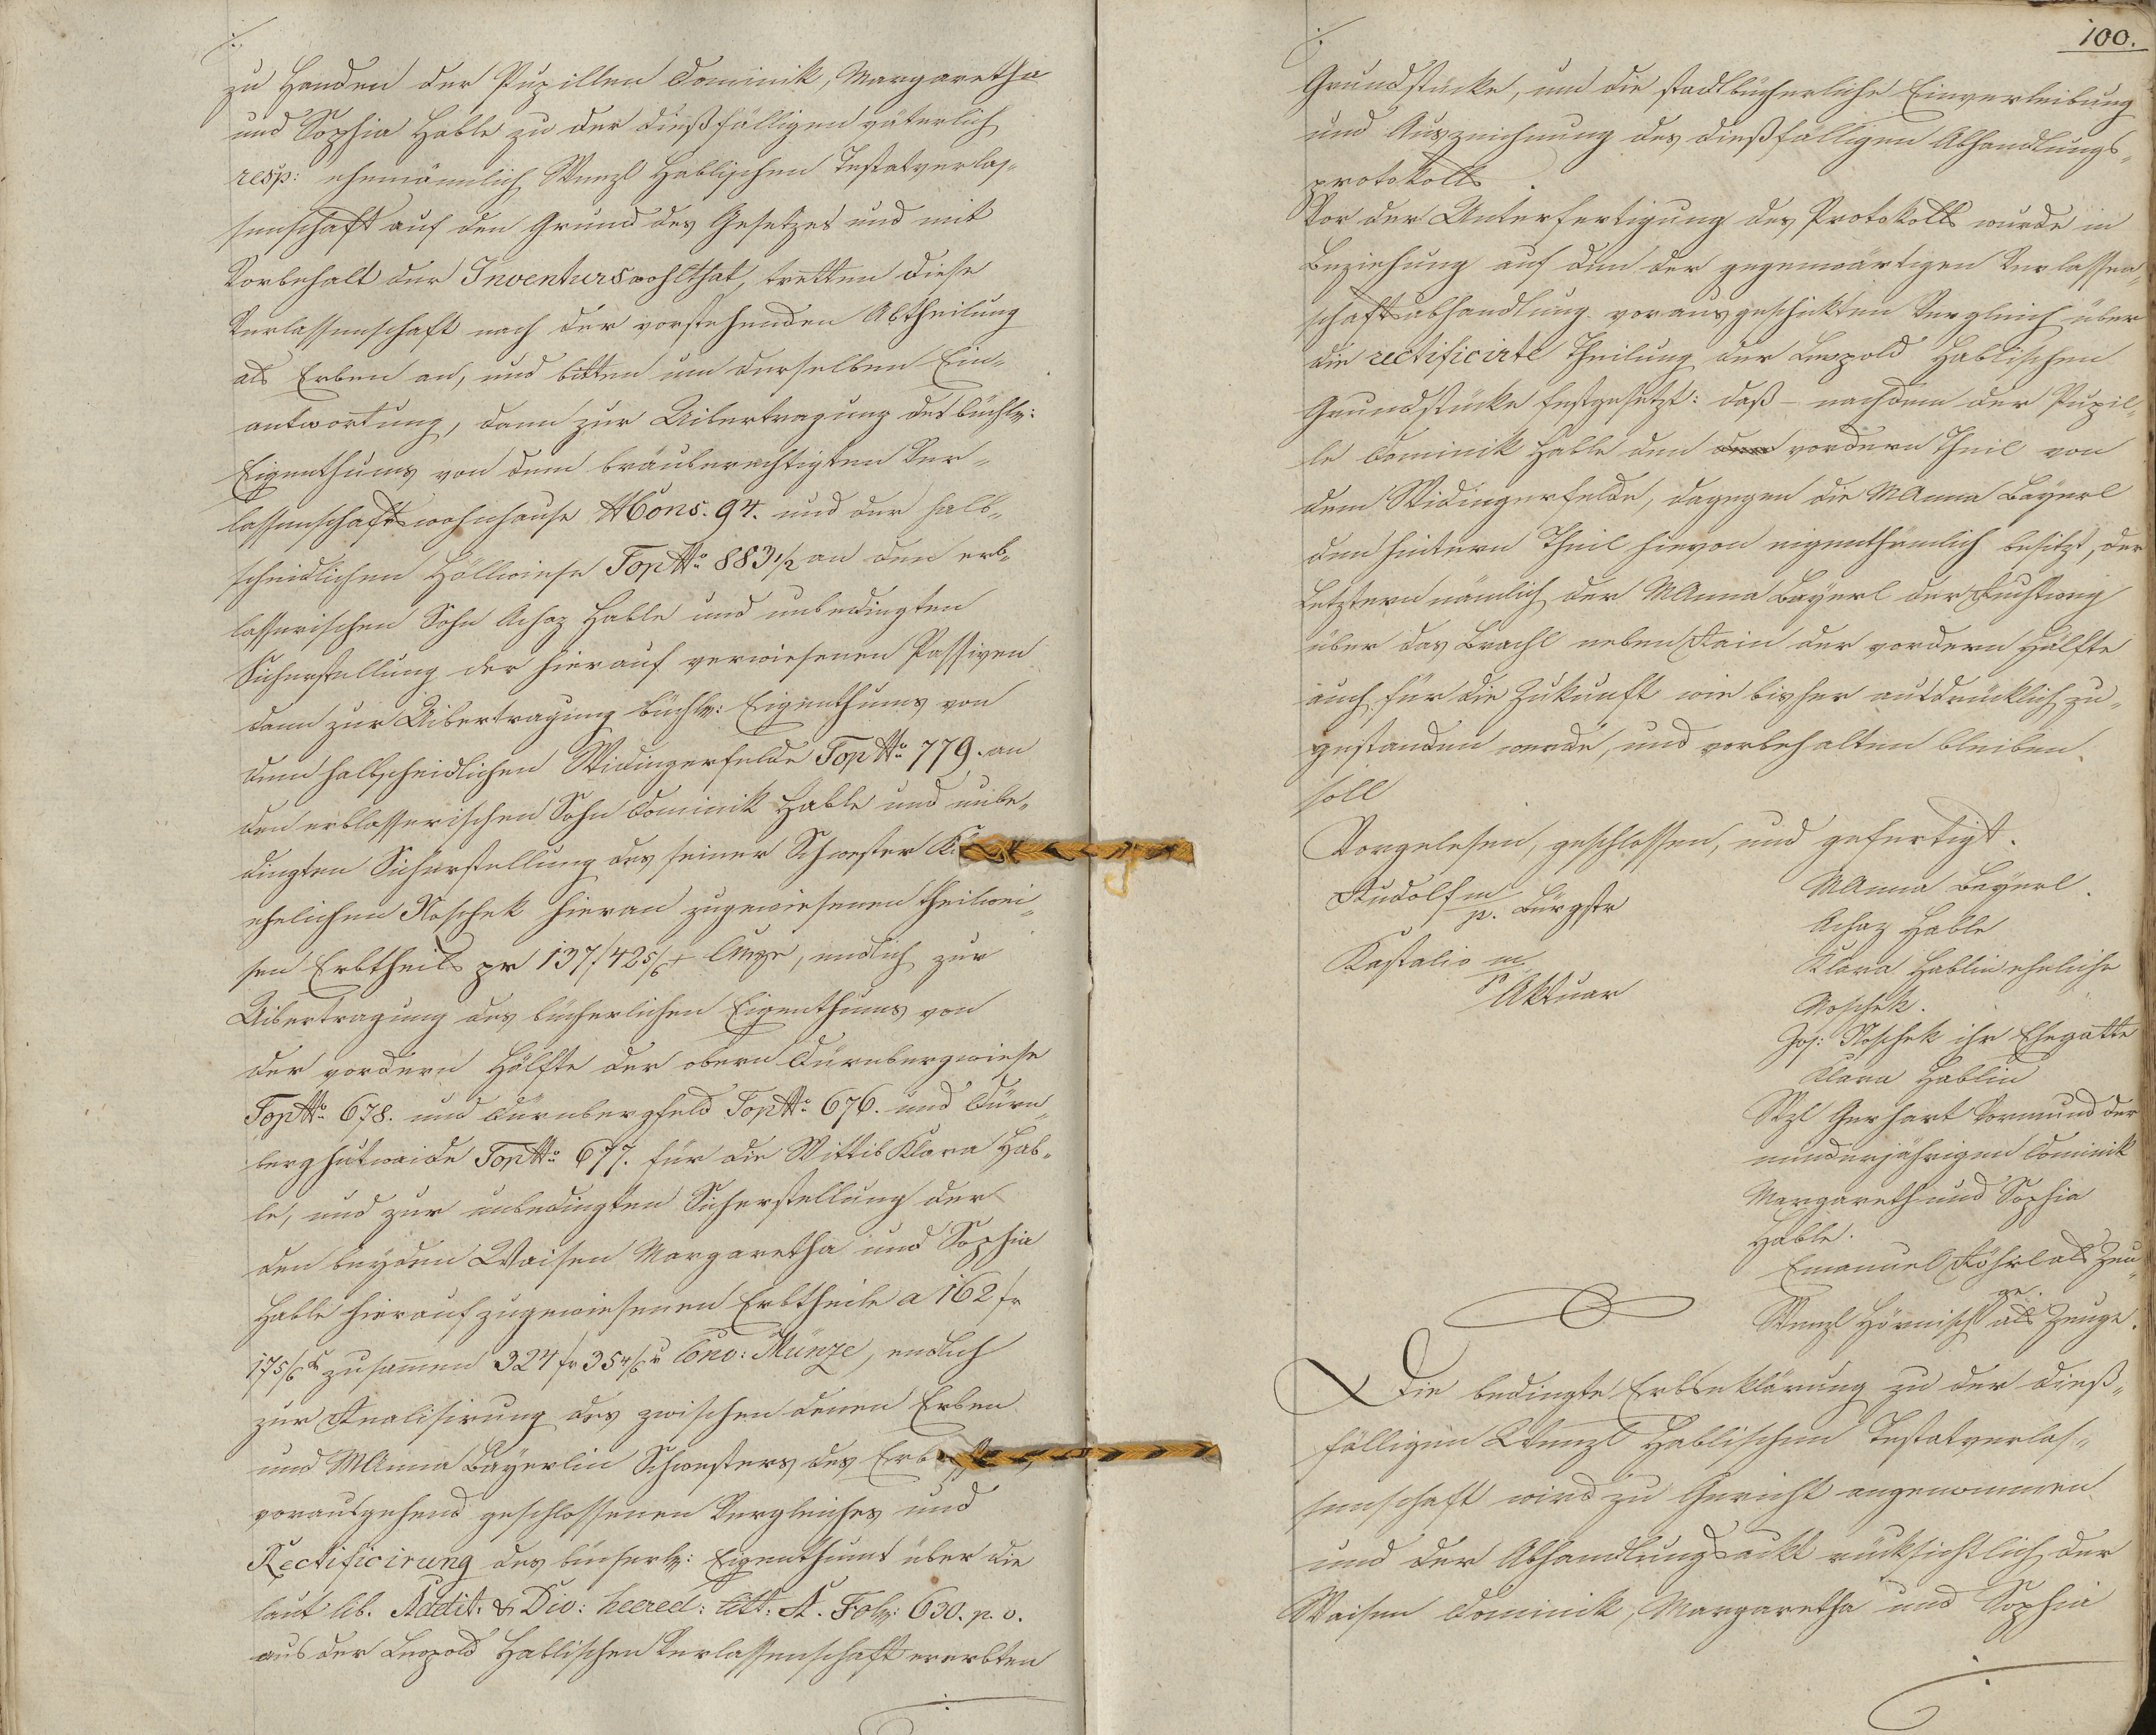 zu Handen der Pupillen Dominik, Margaretha
und Sophia Hable zu der dießfälligen väterlich
resp: ehemännlich Wenzl Hablischen Testatverlas-
senschaft auf den Grund des Gesetzes und mit
Vorbehalt der Inventurswohlthat, tretten diese
Verlassenschaft nach der vorstehenden Abtheilung
als Erben an, und bitten um derselben Ein-
antwortung, dann zur Uibertragung des büchl:
Eigenthums von dem bräuberechtigten Ver-
lassenschaftswohnhause NCons. 94. und der halb-
scheidlichen Höllwiese Top No 883 1/2 an den erb-
lasserischen Sohn Achaz Hable und unbedingten
Sicherstellung der hierauf verwiesenen Passiven
dann zur Uibertragung büchl: Eigenthums von
dem halbscheidlichen Widingerfelde Top No 779. an
den erblasserischen Sohn Dominik Hable und unbe-
dingten Sicherstellung des seiner Schwester K.
ehelichen Noschek hieran zugewiesenen theilwei-
sen Erbtheils pr 137 f 42 5/6 x, endlich zur
Uibertragung des bücherlichen Eigenthums von
der vordern Hälfte der obern Dürnbergwiese
Top No 678. und Dürnbergfeld Top No 676. und Dürn-
berghutweide Top No 677. für die Wittib Klara Hab-
le, und zur unbedingten Sicherstellung der
den beyden Waisen Margaretha und Sophia
Hable hierauf zugewiesenen Erbtheile a 162 fr
17 5/6 x zusamen 324 fr 35 4/6 x Conv: Münze, endlich
zur Realisirung des zwischen denen Erben
und MAnna Bayerlin Schwesters des Erb
vorausgehend geschlossenen Vergleiches und
Rectificirung des bücherl: Eigenthums über die
laut lib. Addit. & Div: heered: litt: A. Fol: 630. p. v.
aus der Leopold Hablischen Verlassenschaft ererbten
100.
Grundstücke, um die stadtbücherliche Einverleibung
und Auszeichnung des dießfälligen Abhandlungs-
protokolls.
Vor der Unterfertigung des Protokolls wurde in
Beziehung auf den der gegenwärtigen Verlassen-
schaftsabhandlung vorausgeschikten Vergleich über
die rectificirte Theilung der Leopold Hablischen
Grundstücke festgesetzt: daß - nachdem der Pupil-
le Dominik Hable den vordern Theil von
dem Widingerfelde, dagegen die MAnna Bayerl
den hintern Theil hievon eigenthümlich besitzt, der
Letztern nämlich der MAnna Bayerl der Fuhrtweg
über das Brachl neben Rain der vordern Hälfte
auch für die Zukunft wie bisher ausdrücklich zu-
gestanden werde, und vorbehalten bleiben
soll
Vorgelesen, geschlossen, und gefertigt.
Rudolf m/p. Bürgstr
Kastalio m/p Aktuar
MAnna Bayerl.
Achaz Hable
Klara Hablin eheliche
Noschek.
Jos: Noschek ihr Ehegatte
Klara Hablin
Wzl Gerhart Vormund der
minderjährigen Dominik
Margareth und Sophia
Hable.
Emanuel Röhrl als Zeu-
ge.
Wenzl Hörnisch als Zeuge.
Die bedingte Erbserklärung zu der dieß-
fälligen Wenzl Hablischen Testatverlas-
senschaft wird zu Gericht angenommen
und der Abhandlungsackt rücksichtlich der
Waisen Dominik, Margaretha und Sophia